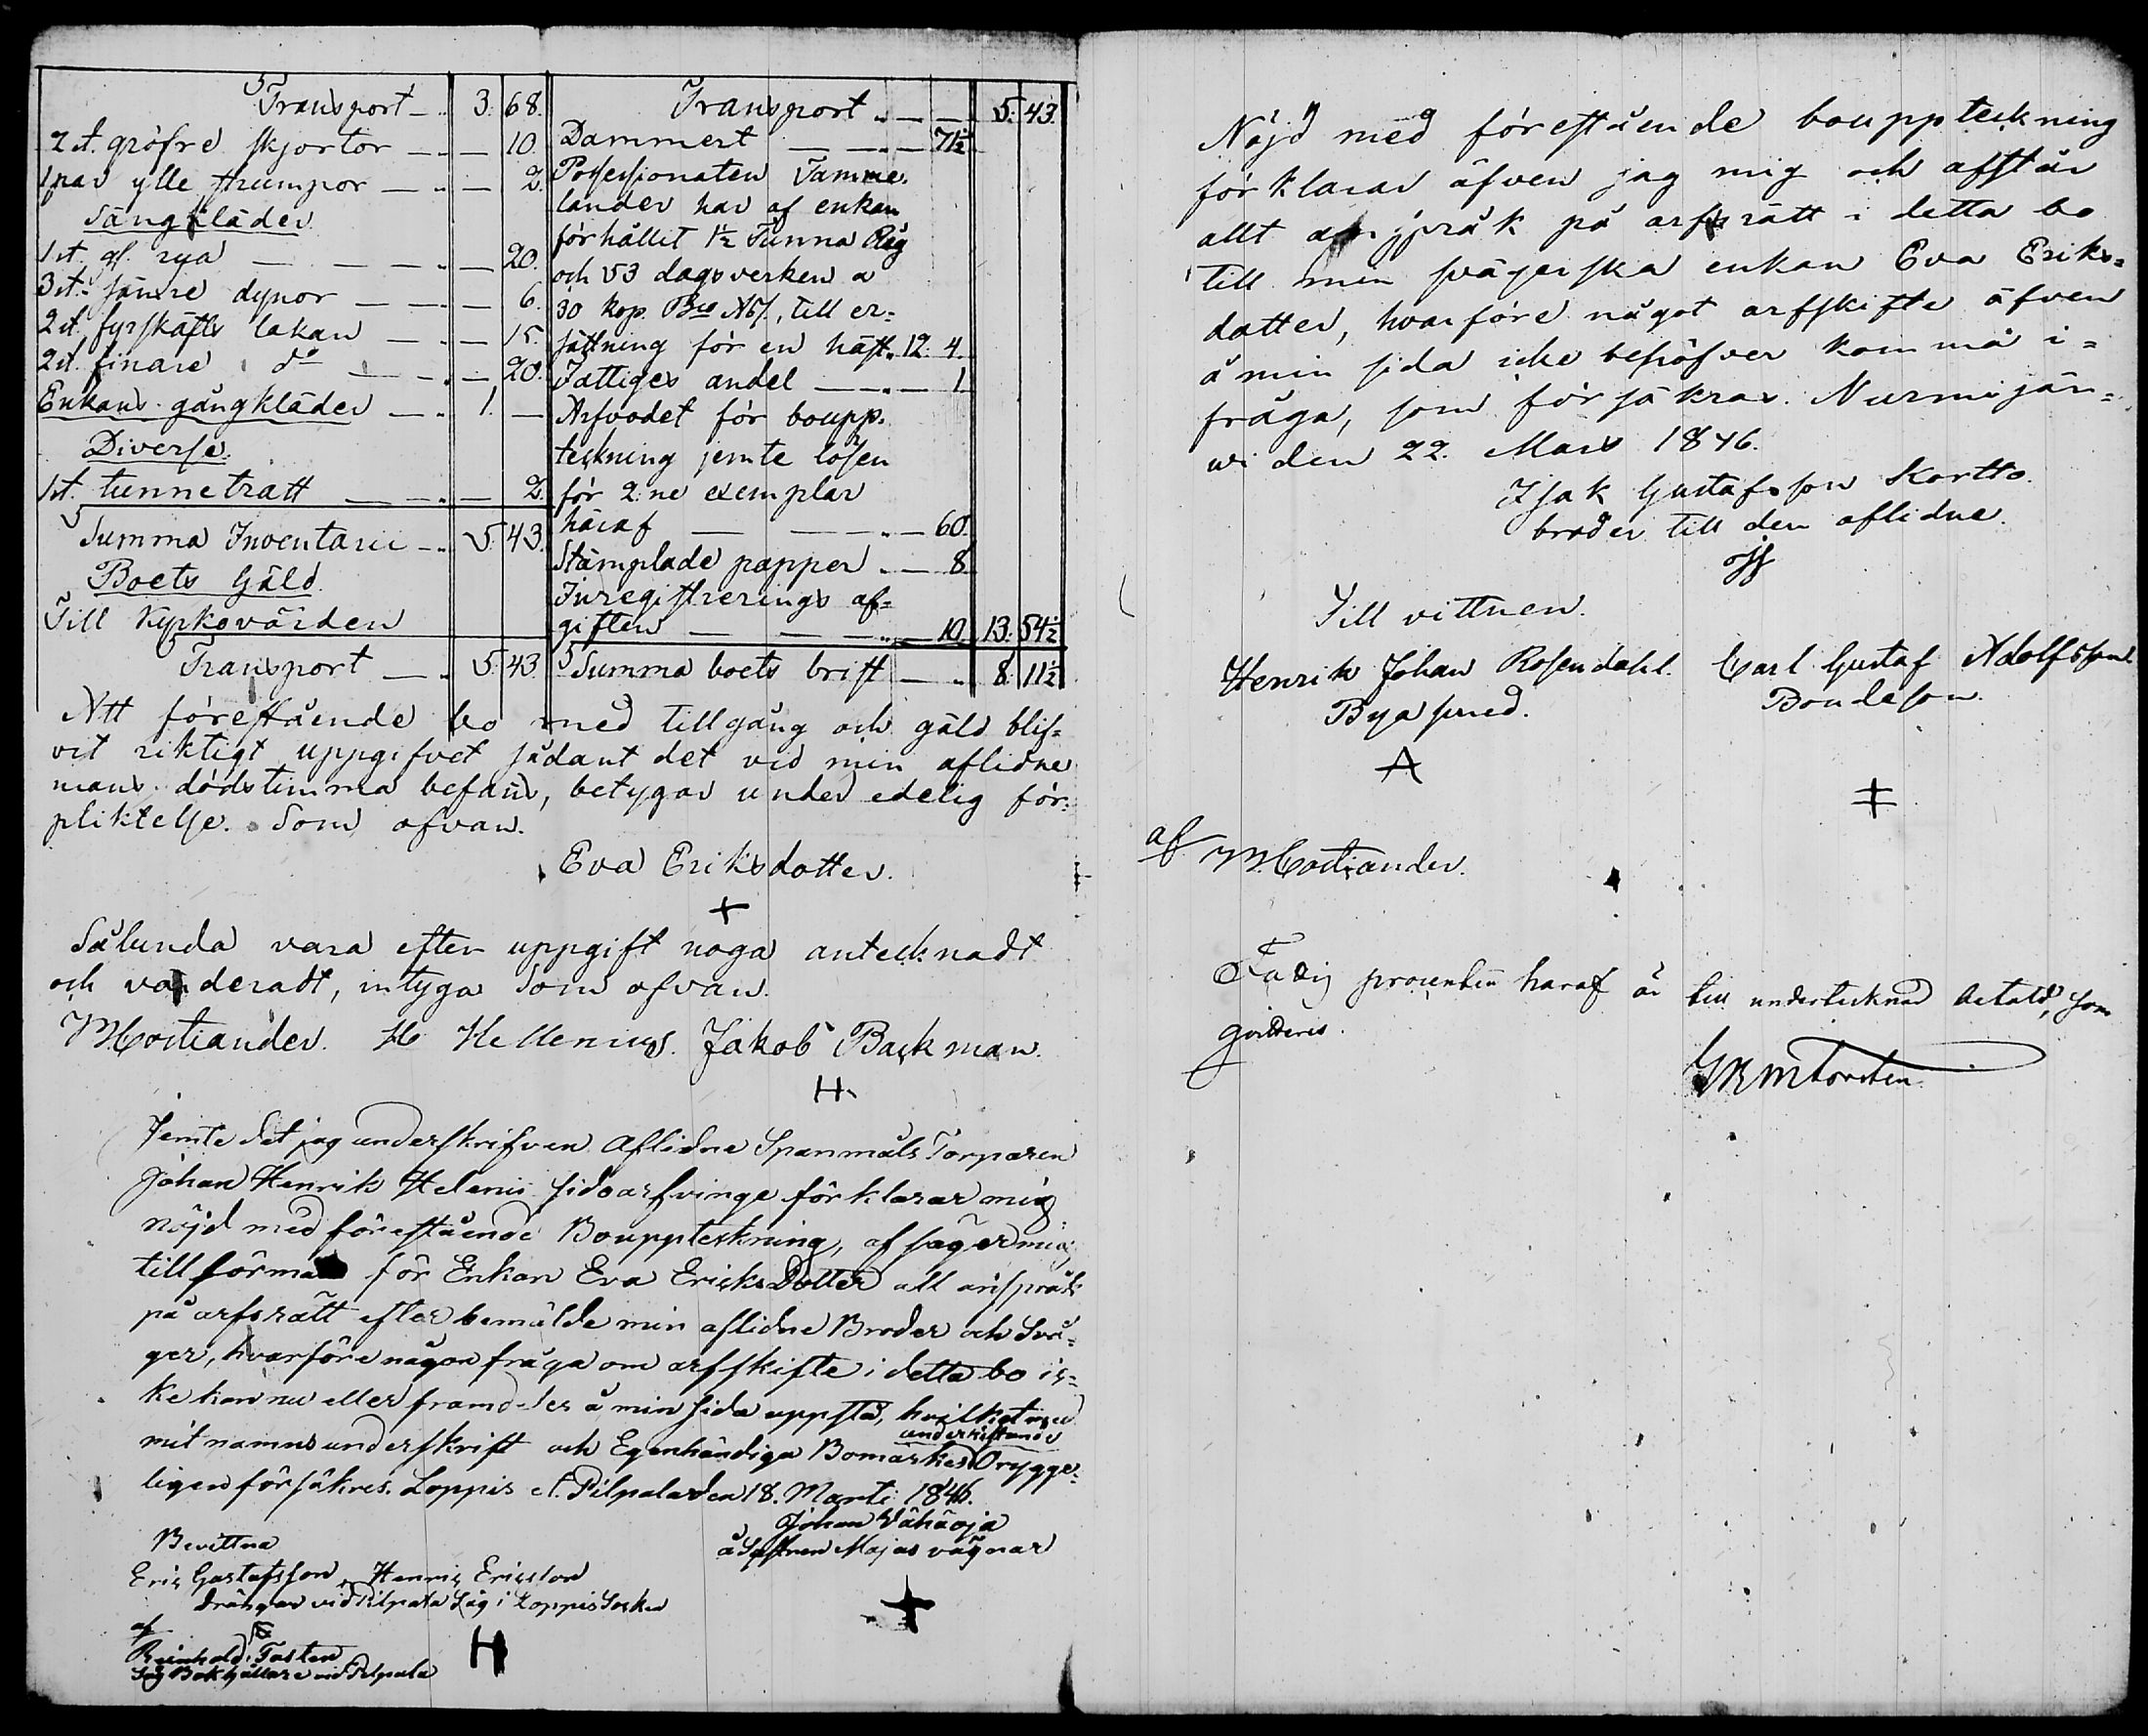 Transport 3. 68.
2 st. gröfre skjortor 10
1 par ylle strumpor 2.
Sängkläder
1 st. gl. rya 20.
3 st. sämre dynor 6.
2 st. fyrskäfts lakan 15.
2 st. finare do 20.
Enkans gångkläder 1. —
Diverse.
1 st. tunnetratt 2
Summa Inventarii 5. 43.
Boets Gäld.
Till Kyrkovärden
Transport 5. 43
Transport 5. 43.
Dammert 71½
Possessionaten Tamme-
lander har af enkan
förhållit 1½ Tunna Råg
och 53 dagsverken a
30 kop. Bco Ass., till er=
sättning för en häst 12. 4.
Fattiges andel 1.
Arfvodet för boupp-
teckning jemte lösen
för 2:ne exemplar
häraf 60.
Stämplade papper 8.
Inregistrerings af=
giften 10. 13. 54½
Summa boets brist 8. 11½
Att förestående bo med tillgång och gäld blif=
vit riktigt uppgifvet sådant det vid min aflidne
mans dödstimma befans, betygar under edelig för=
pliktelse. Som ofvan.
Eva Eriksdotter.
Sålunda vara efter uppgift noga antecknadt
och värderadt, intyga Som ofvan.
M. Costiander. H. Hellenius. Jakob Backman.
H
Jemte det jag underskrifven Aflidne Spanmåls Torparen
Johan Henrik Helenii sidoarfvinge förklarar mig
nöjd med förestående Bouppteckning, afsäger mig
till förmån för Enkan Eva Ericks Dotter all anspråk
på arfsrätt efter bemälde min aflidne Broder och Svå=
ger, hvarföre någon fråga om arfskifte i detta bo ic=
ke kan nu eller framdeles å min sida uppstå, hvilket med
mit namns underskrift och Egenhändiga Bomärkes underristande Orygge=
ligen försäkras. Loppis et. Pilpala den 18. Martii 1846.
Johan Vähäoja
å Hustrun Majas vägnar
Bevittna
Eric Gustafsson, Henric Ericsson
drängar vid Pilpala Såg i Loppis Socken
af
Reinhold Fasten
Såg Bokhållare vid Pilpala
H
Nöjd med förestående bouppteckning
förklarar äfven jag mig och afstår
allt anspråk på arfsrätt i detta bo
till min svägerska enkan Eva Eriks=
dotter, hvarföre något arfskifte äfven
å min sida icke behöfver komma i=
fråga, som försäkras. Nurmijär=
wi den 22. Mars 1846.
Isak Gustafsson Kortto.
broder till den aflidne.
Till vittnen.
Henrik Johan Rosendahl. Carl Gustaf Adolfsson
Byasmed. Bondeson.
A
af M. Costiander.
Fattig procenten häraf är till undertecknad betald, som
qvitteras.